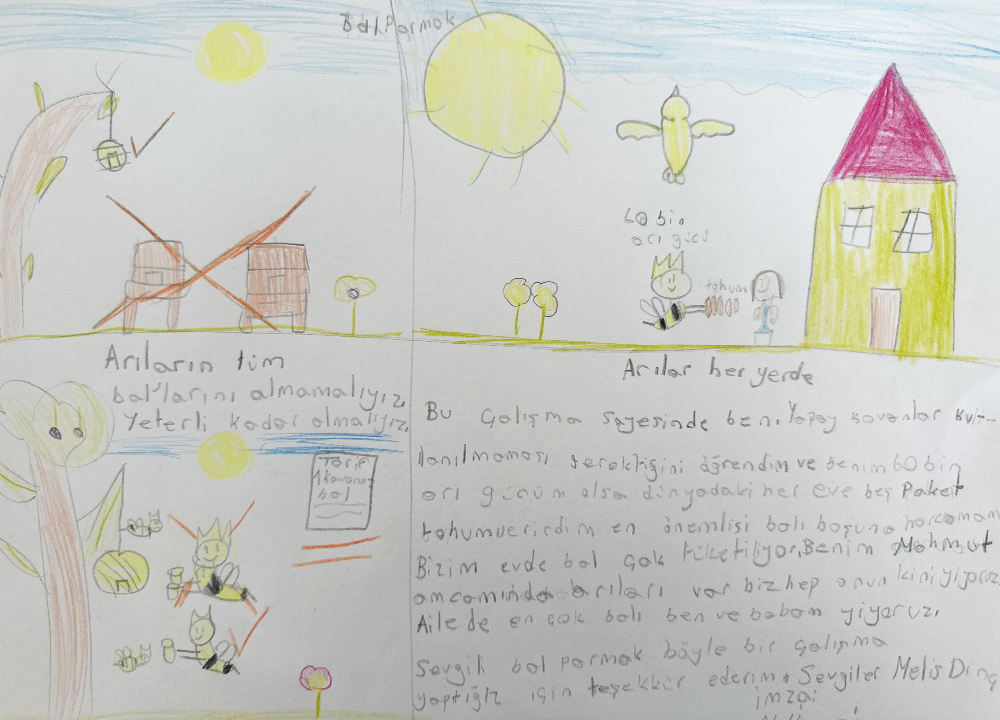 Bal Parmak
60 bin
arı gücü
tohum
Arıların tüm
bal'larını almamalıyız.
Yeterli kadar almalıyız.
Arılar her yerde
Tarif
1 kavanoz
bal
Bu çalışma sayesinde ben, Yapay kovanlar kul-
lanılmaması gerektiğini öğrendim ve benim 60 bin
arı gücüm olsa dünyadaki her eve beş Paket
tohum verirdim en önemlisi balı boşuna harcamam
Bizim evde bal çok tüketiliyor. Benim Mahmut
amcamında arıları var biz hep onun kini yiyoruz.
Ailede en çok balı ben ve babam yiyoruz.
Sevgili bal parmak böyle bir çalışma
yaptığız için teşekkür ederim. Sevgiler Melis Dinç
imza: